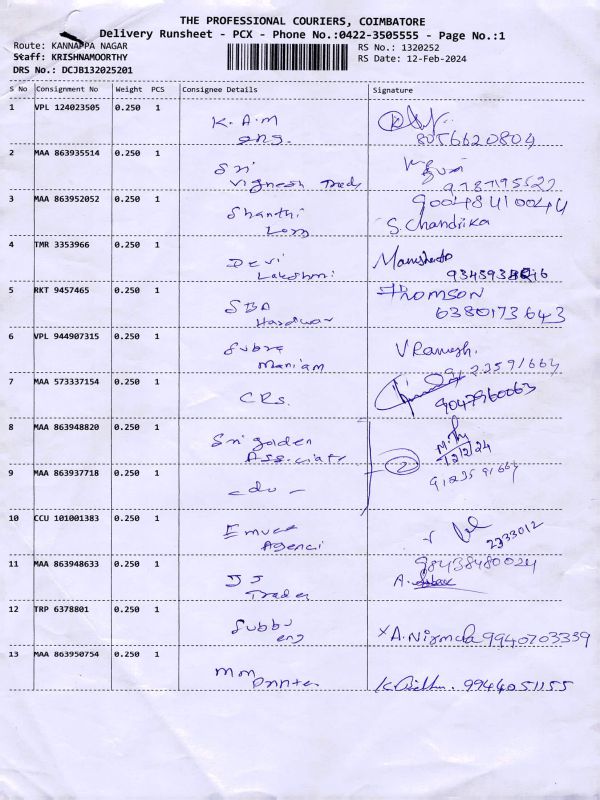 THE PROFESSIONAL COURIERS, COIMBATORE
Delivery Runsheet - PCX - Phone No.:0422-3505555 - Page No.:1
Route: KANNAPPA NAGAR
RS No.: 1320252
Staff: KRISHNAMOORTHY
RS Date: 12-Feb-2024
DRS No.: DCJB132025201
S No Consignment No Weight PCS Consignee Details Signature
1 VPL 124023505 0.250 1 K.A.M
eng. 8056620804
2 MAA 863935514 0.250 1 Sri
Vignesh
3 MAA 863952052 0.250 1 Shanthi 90048410044
S. Chandrika
4 TMR 3353966 0.250 1 Devi
Lakshmi
5 RKT 9457465 0.250 1 SBA Thomson
Hardwar 6380173643
6 VPL 944907315 0.250 1 Subra V Ramesh.
Maniam 9123591664
7 MAA 573337154 0.250 1 CRs. 9047960063
8 MAA 863948820 0.250 1 Sri golden
Associats 12/2/24
9 MAA 863937718 0.250 1 - do - 2 9123591664
10 CCU 101001383 0.250 1 2333012
Agenci
11 MAA 863948633 0.250 1 98438480024
Trader A.
12 TRP 6378801 0.250 1 Subbu
eng X A. Nirmala 9940703339
13 MAA 863950754 0.250 1 Mm
Printer 9944051155